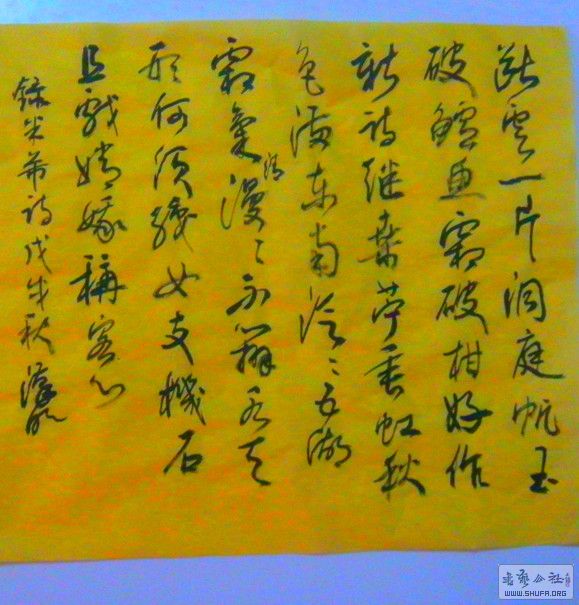 断雲一片洞庭帆玉
破鱸魚霜破柑好作
新詩继桑苧垂虹秋
色滿東南泛〻五湖
霜氣清漫〻不辨水天
形何須織女支機石
且戲嫦娥稱客心
錄米芾詩戊戌秋
書藝公社
WWW.SHUFA.ORG